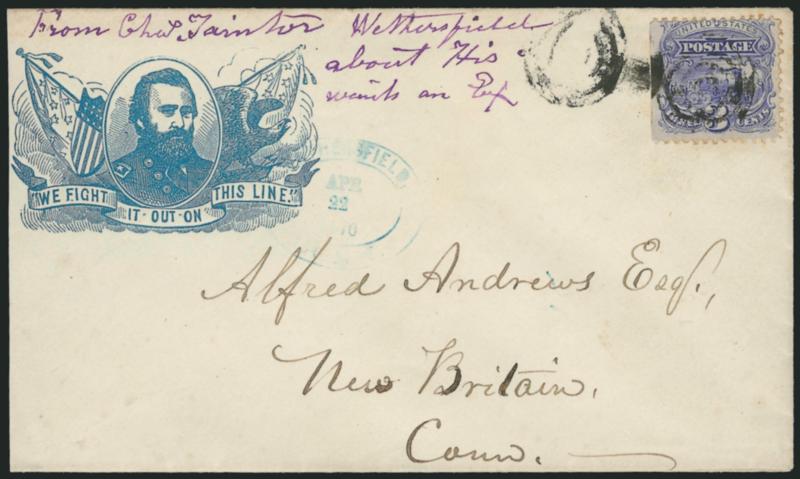 From Chas Taintor Wethersfield
about His
wants an Ex
UNITED STATES
POSTAGE
THREE 3 CENTS
WE FIGHT IT-OUT-ON THIS LINE."
SFIELD
APR
22
70
Alfred Andrews Esq.,
New Britain,
Conn.